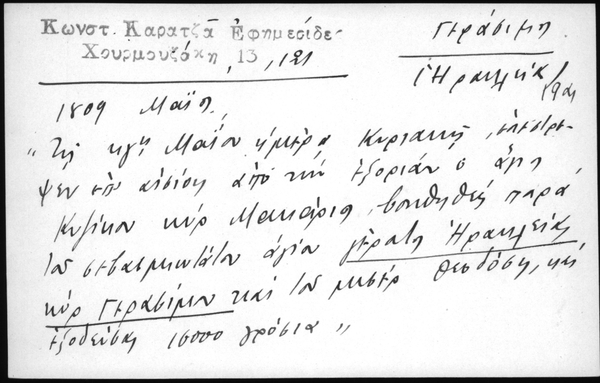 Κωνστ. Καρατζᾶ Ἐφημεσίδε-
Χουρμουζάκη, 13, 121
Γεράσιμη
(Ἡρακλείας
1809 Μαΐ
"Τῇ κγῃ Μαΐου ἡμέρᾳ Κυριακῇ, ἐπέστρε-
ψεν ἐπ' αἰσίοις ἀπὸ τὴν ἐξορίαν ὁ ἅγιος
Κυζίκου κὺρ Μακάριος, βοηθηθεὶς παρὰ
τοῦ σεβασμιωτάτου ἁγίου γέροντος Ἡρακλείας
κὺρ Γερασίμου καὶ τοῦ Θεοδόση, καὶ
ἐξοδεύσας 15000 γρόσια"